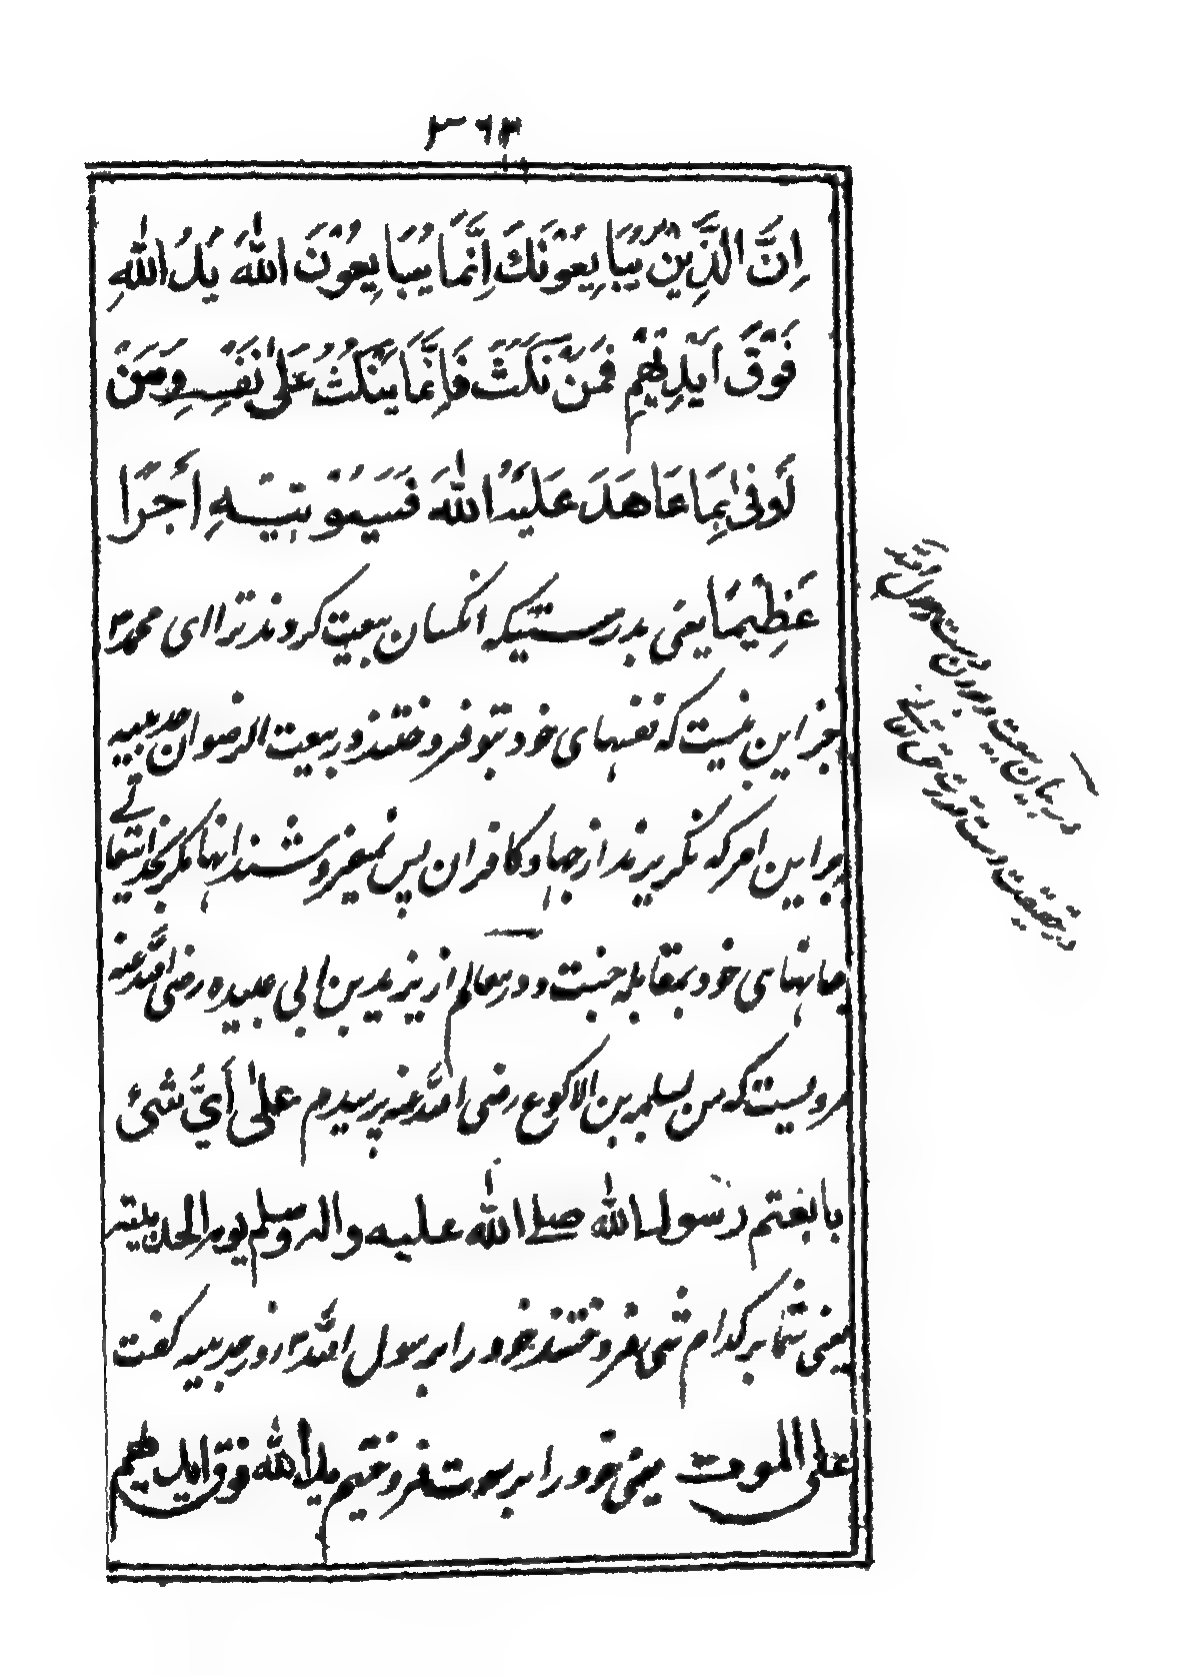 ۳۶۳
اِنَّ الَّذِیْنَ یُبَایِعُوْنَكَ اِنَّمَا یُبَایِعُوْنَ اللّٰهَ یَدُ اللّٰهِ
فَوْقَ اَیْدِیْهِمْ فَمَنْ نَكَثَ فَاِنَّمَا یَنْكُثُ عَلٰی نَفْسِهٖ وَمَنْ
اَوْفٰی بِمَا عَاهَدَ عَلَیْهُ اللّٰهَ فَسَیُؤْتِیْهِ اَجْرًا
عَظِیْمًا یعنی بدرستیکه آنکسان بیعت کردند ترا ای محمدؐ
جز این نیست که نفسهای خود بتو فروختند در بیعت الرضوان حدیبیه
برای این امر که نگریزند از جهاد کافران پس نمیفروشند انها مگر بخدایتعالے
جانهای خود بمقابله جنت و در معالم از یزید بن ابی عبیده رضی الله عنه
مرویست که من بسلمه بن الاکوع رضی الله عنه پرسیدم علٰی أیِّ شیٔ
بایعتم رسول الله صلی الله علیه واله وسلم یوم الحدیبیته
یعنی شما بر کدام شی فروختند خود را برسول اللهؐ روز حدیبیه گفت
علی الموت یعنی خود را بر موت فروختیم ید الله فوق ایدیهم
در بیان بیعت و بودن دست رسول الله
در حقیقت دست قدرت حق تعالے